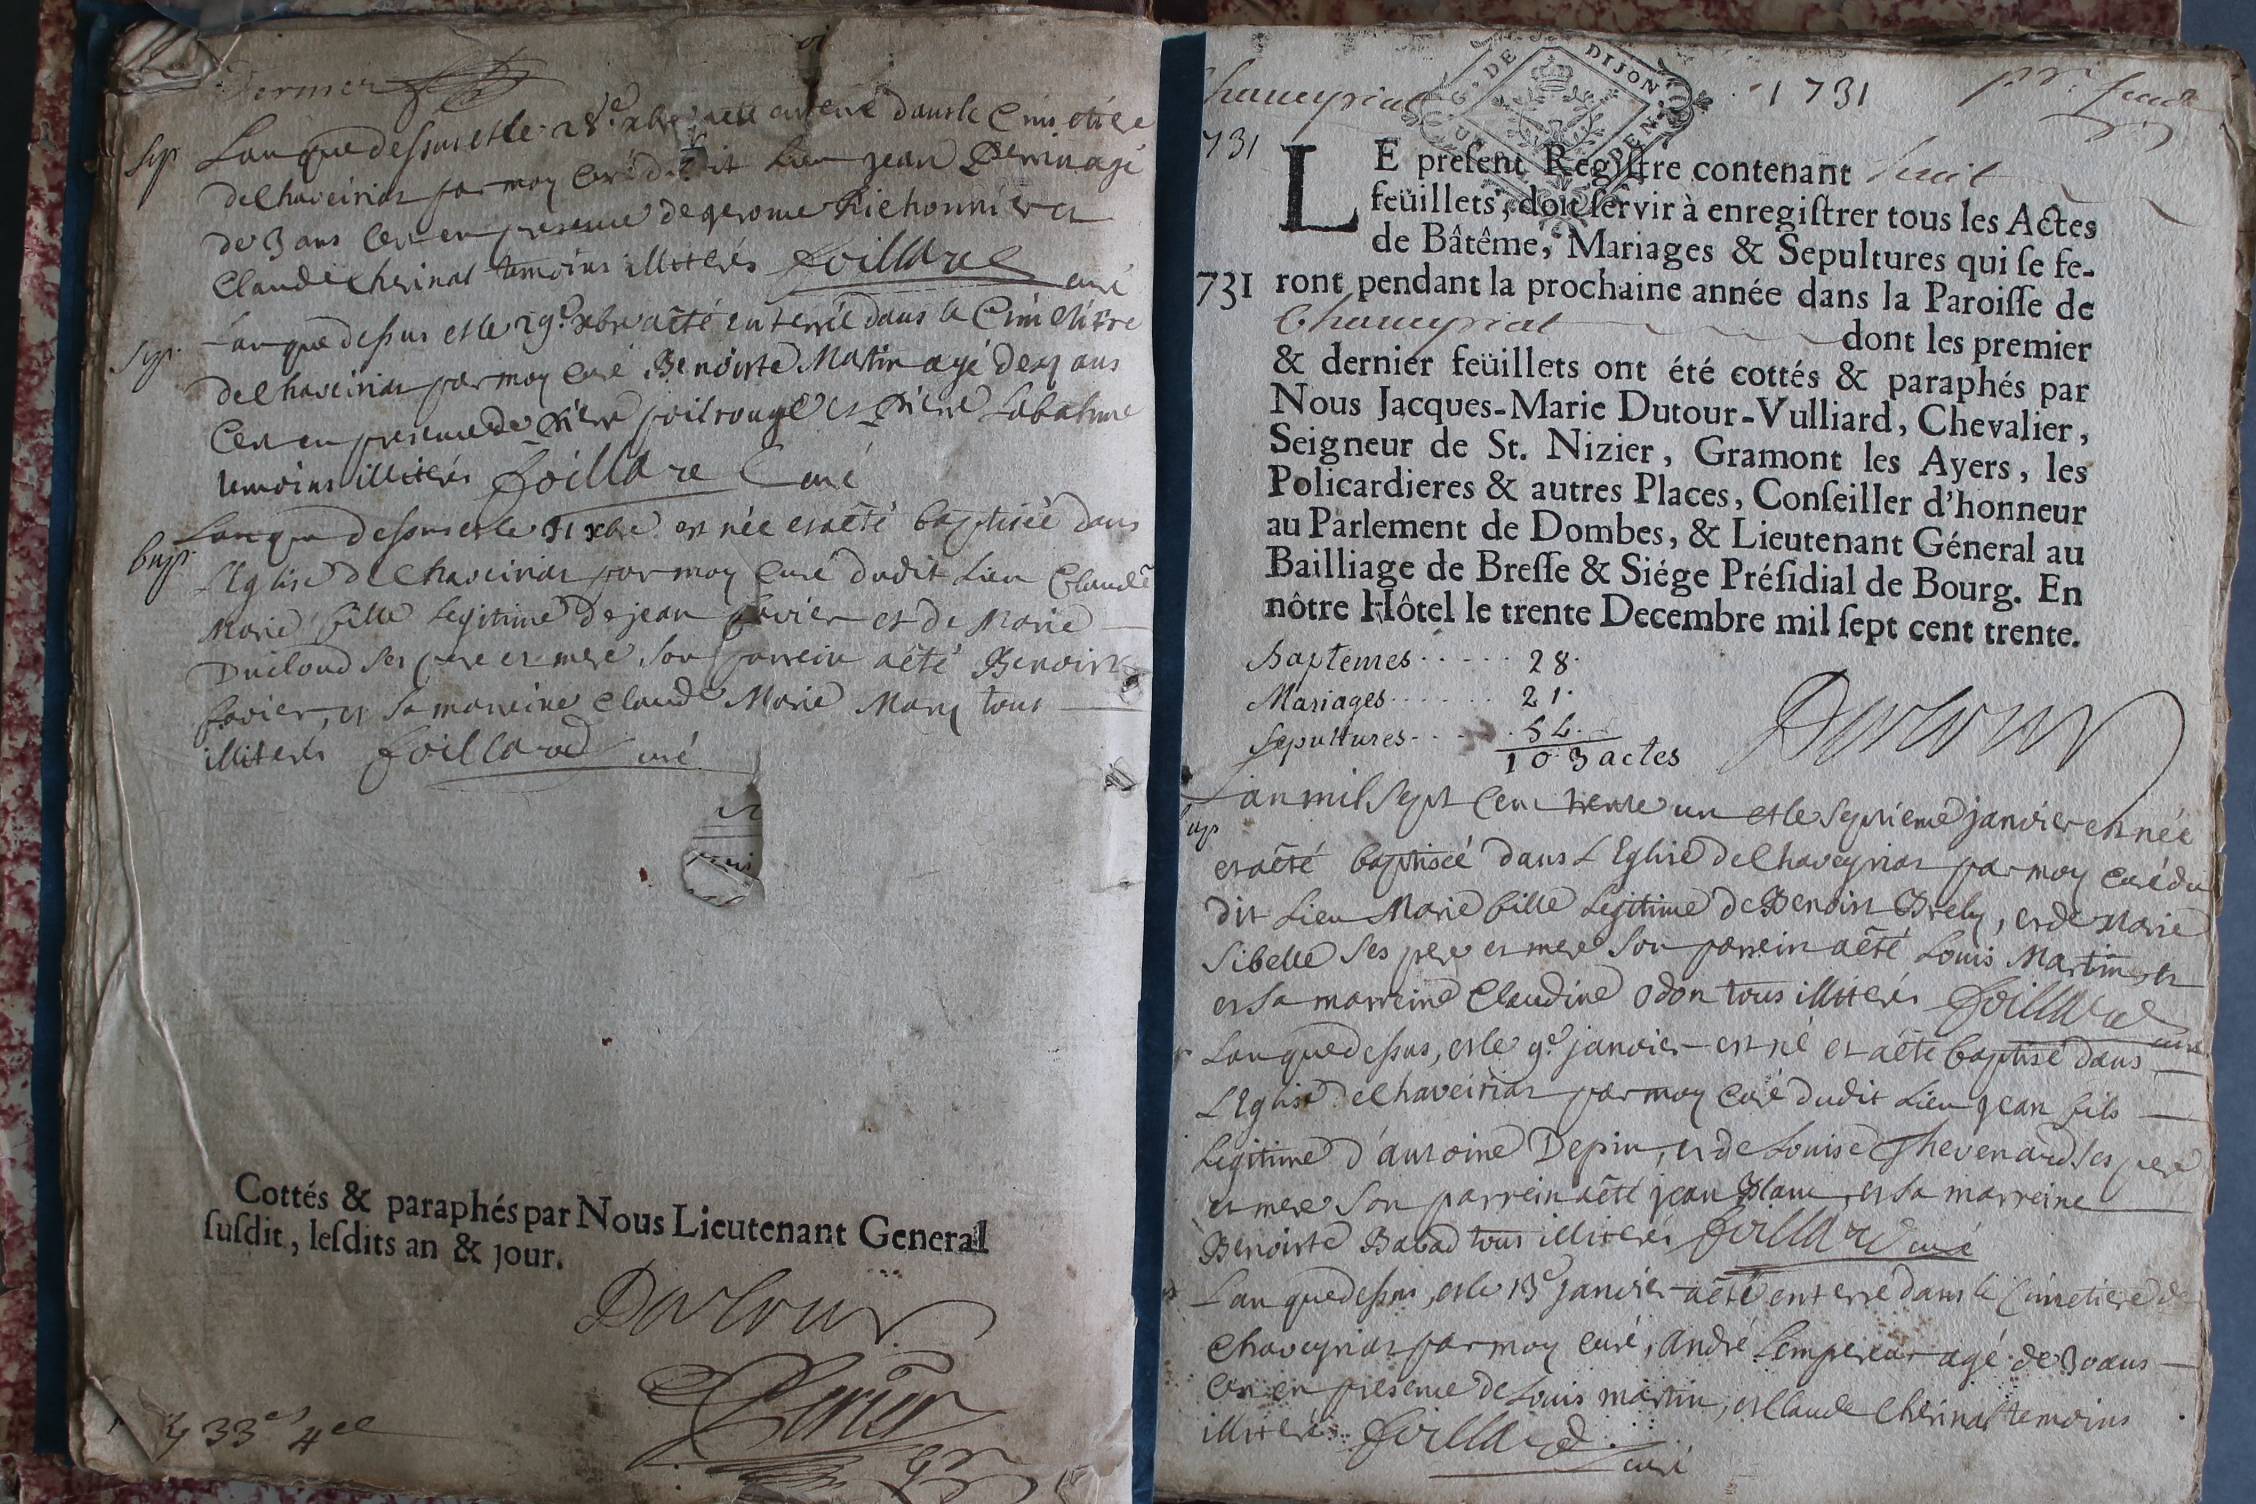 Dernier
Sep
L'an que dessus et le 28e xbre a été enterré dans le Cimetiere
de Chaveiriat par moy Curé dudit Lieu jean Perrin agé
de 3 ans Cet en presence de gerome Richonnier et
Claude Cherinal temoins illiterés foillard curé
Sep.
L'an que dessus et le 29e xbre a été enterrée dans le Cimetiere
de Chaveiriat par moy Curé Benoiste Martin agé de ans
Cet en presence de Pierre poilrouge et Pierre Labalme
temoins illiterés foillard Curé
bap.
L'an que dessus et le 31 xbre est née et a été baptisée dans
L'Eglise de Chaveiriat par moy Curé dudit Lieu Claude
Marie fille Legitime de jean favier et de Marie
Duiloud ses pere et mere, son parrein a été Benoist
favier, et sa marreine Claude Marie tous
illiterés foillard curé
Cottés & paraphés par Nous Lieutenant General
suſdit, leſdits an & jour.
Dutour
33e 4el
Chaveyriat 1731 pr. feuillet
731
LE preſent Regiſtre contenant huit
feüillets, doit ſervir à enregiſtrer tous les Actes
de Bâtême, Mariages & Sepultures qui ſe fe-
731 ront pendant la prochaine année dans la Paroiſſe de
Chaveyriat dont les premier
& dernier feüillets ont été cottés & paraphés par
Nous Jacques-Marie Dutour-Vulliard, Chevalier,
Seigneur de St. Nizier, Gramont les Ayers, les
Policardieres & autres Places, Conſeiller d'honneur
au Parlement de Dombes, & Lieutenant Géneral au
Bailliage de Breſſe & Siége Préſidial de Bourg. En
nôtre Hôtel le trente Decembre mil ſept cent trente.
Baptemes 28.
Mariages 21.
Sepultures 54.
103 actes
Dutour
L'an mil sept Cent trente un et le septieme janvier est née
et a été baptisée dans L'Eglise de Chaveyriat par moy curé du
dit Lieu Marie fille Legitime de Benoist Brely, et de Marie
Sibelle ses pere et mere son parrein a été Louis Martin et
et sa marreine Claudine odon tous illiterés foillard curé
L'an que dessus, et le 9e janvier est né et a été baptisé dans
L'Eglise de Chaveiriat par moy Curé dudit Lieu jean fils
Legitime d'antoine Depin, et de Louise Thevenard ses pere
et mere son parrein a été jean Blanc, et sa marreine
Benoiste Babad tous illiterés foillard curé
L'an que dessus, et le 13e janvier a été enterré dans le Cimetiere de
Chaveyriat par moy curé, andré Lempereur agé de 30 ans
Cet en presence de Louis martin, et Claude Cherinal temoins
illiterés foillard curé